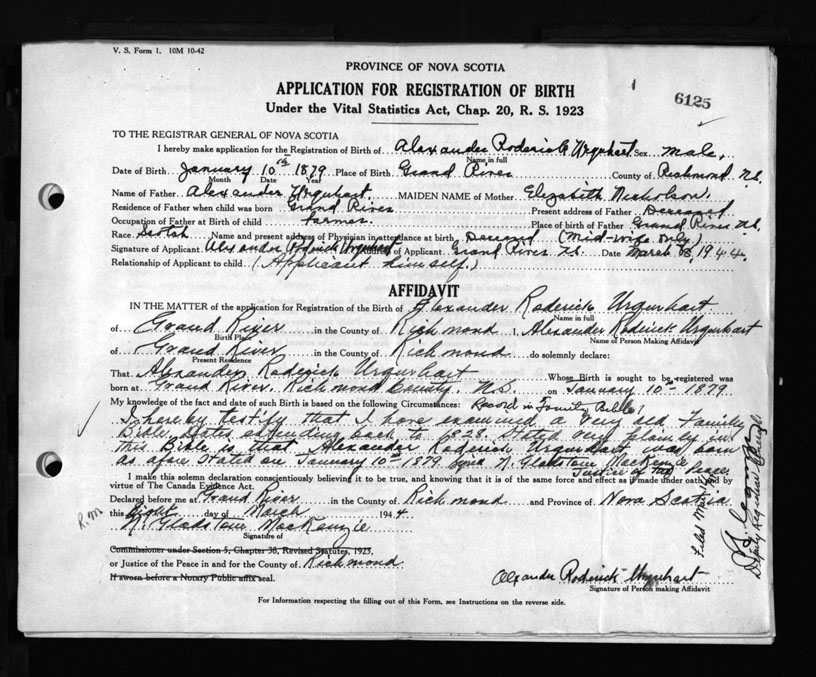 V. S. Form 1. 10M 10-42
PROVINCE OF NOVA SCOTIA
APPLICATION FOR REGISTRATION OF BIRTH
6125
Under the Vital Statistics Act, Chap. 20, R. S. 1923
TO THE REGISTRAR GENERAL OF NOVA SCOTIA
I hereby make application for the Registration of Birth of Alexander Roderick Urquhart Sex male
Name in full
Date of Birth January 10th 1879 Place of Birth Grand River County of Richmond N.S.
Month Date Year
Name of Father Alexander Urquhart MAIDEN NAME of Mother Elizabeth Nicholson
Residence of Father when child was born Grand River Present address of Father Deceased
Occupation of Father at Birth of child farmer Place of birth of Father Grand River N.S.
Race Scotch Name and present address of Physician in attendance at birth Deceased (Mid-wife only)
Signature of Applicant Alexander Roderick Urquhart of Applicant Grand River N.S. Date March 8, 1944
Relationship of Applicant to child (Applicant himself.)
AFFIDAVIT
IN THE MATTER of the application for Registration of the Birth of Alexander Roderick Urquhart
Name in full
of Grand River in the County of Richmond I, Alexander Roderick Urquhart
Birth Place Name of Person Making Affidavit
of Grand River in the County of Richmond do solemnly declare:
Present Residence
That Alexander Roderick Urquhart Whose Birth is sought to be registered was
born at Grand River, Richmond County, N.S. on January 10th 1879
My knowledge of the fact and date of such Birth is based on the following Circumstances: Record in Family Bible
I hereby testify that I have examined a very old Family
Bible, Dates extending back to 1828. Stated very plainly in
this Bible is that Alexander Roderick Urquhart was born
as afore stated on January 10th 1879. Signed N. Gladstone MacKenzie
Justice of the Peace
I make this solemn declaration conscientiously believing it to be true, and knowing that it is of the same force and effect as if made under oath, and by
virtue of The Canada Evidence Act.
Declared before me at Grand River in the County of Richmond and Province of Nova Scotia
this Eight day of March 1944
N. Gladstone MacKenzie
Signature of
Commissioner under Section 5, Chapter 38, Revised Statutes, 1923,
or Justice of the Peace in and for the County of Richmond
If sworn before a Notary Public affix seal.
Alexander Roderick Urquhart
Signature of Person making Affidavit
For Information respecting the filling out of this Form, see Instructions on the reverse side.
R.M.
Deputy Registrar General